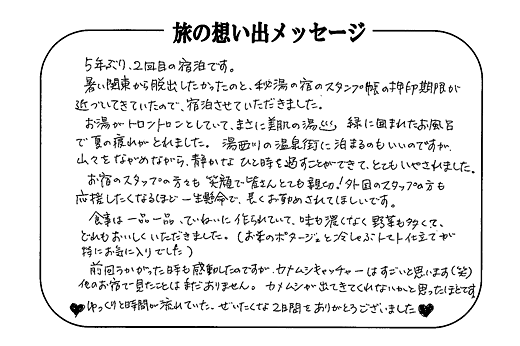 旅の想い出メッセージ
5年ぶり、2回目の宿泊です。
暑い関東から脱出したかったのと、秘湯の宿のスタンプ帳の押印期限が
近づいてきていたので、宿泊させていただきました。
お湯がトロントロンとしていて、まさに美肌の湯♨ 緑に囲まれたお風呂
で夏の疲れがとれました。湯西川の温泉街に泊まるのもいいのですが、
山々をながめながら、静かなひと時を過すことができて、とてもいやされました。
お宿のスタッフの方々も笑顔で皆さんとても親切!外国のスタッフの方も
応援したくなるほど一生懸命で、長くお勤めされてほしいです。
食事は一品一品、ていねいに作られていて、味も濃くなく野菜も多くて、
どれもおいしくいただきました。(お茶のポタージュと冷しゃぶトマト仕立てが
特にお気に入りでした)
前回うかがった時も感動したのですが、カメムシキャッチャーはすごいと思います(笑)
他のお宿で見たことはまだありません。カメムシが出てきてくれないかと思ったほどです
♥ゆっくりと時間が流れていた、ぜいたくな2日間をありがとうございました♥